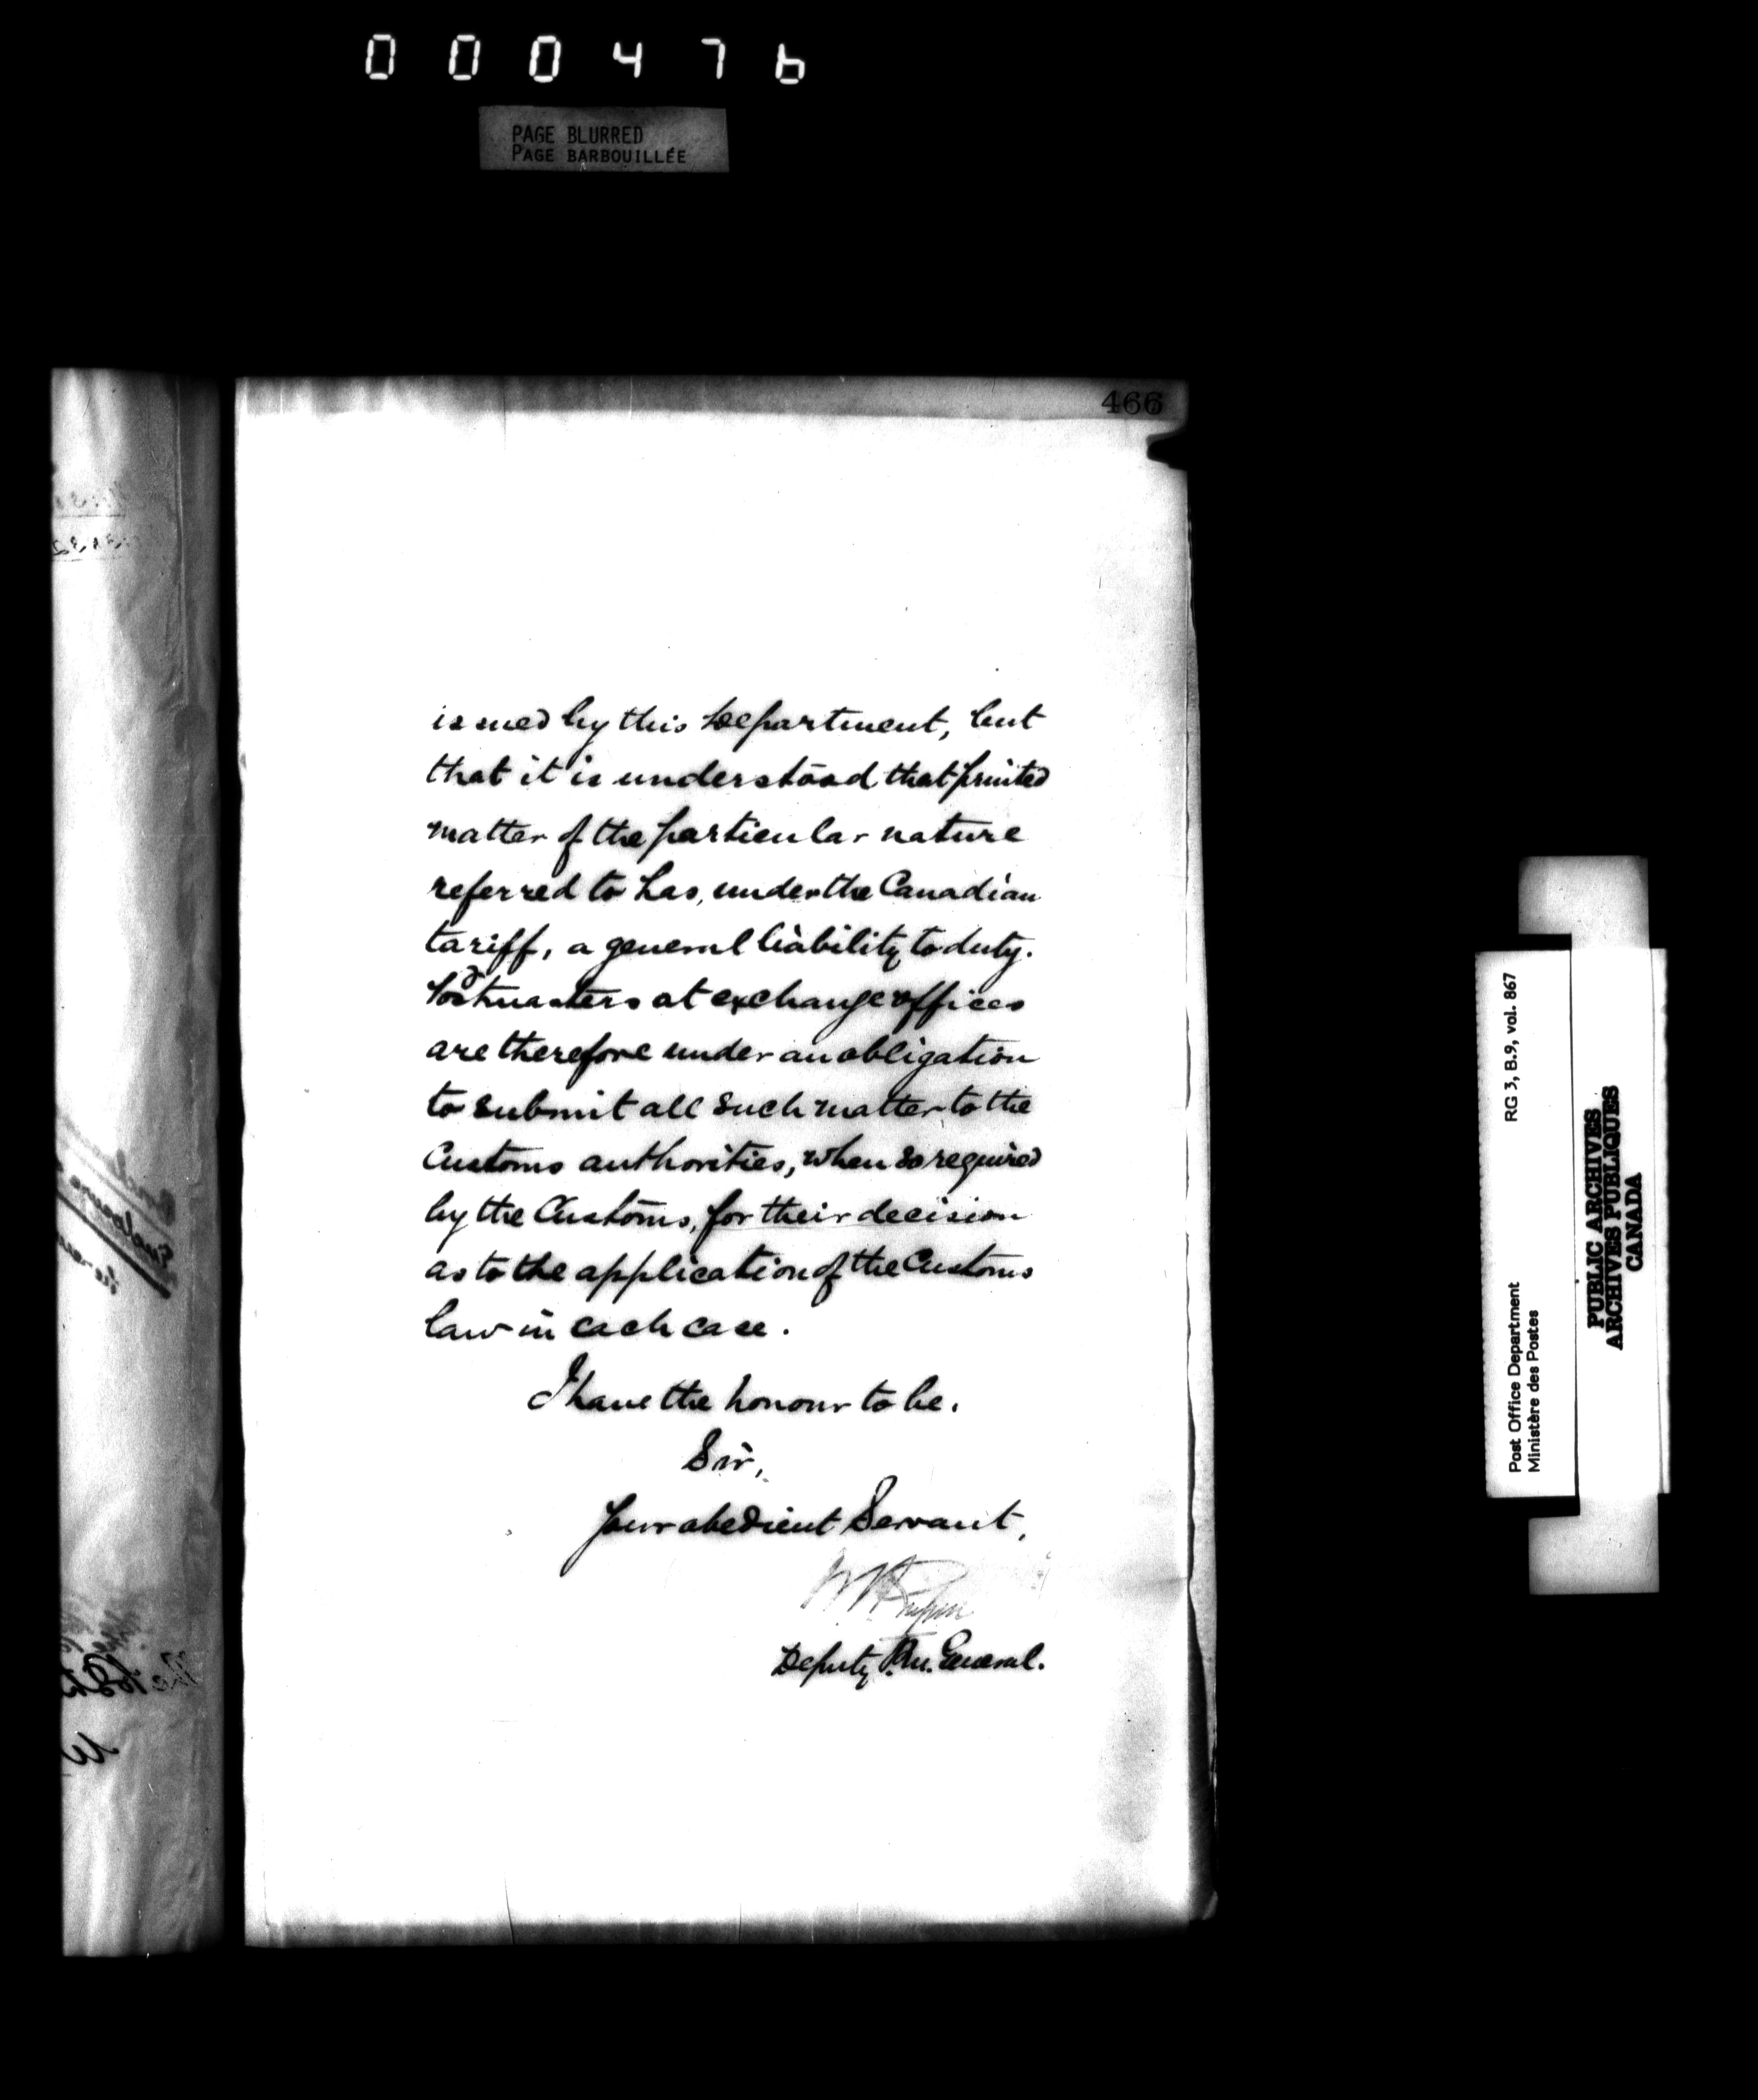 000476
PAGE BLURRED
PAGE BARBOUILLÉE
466
issued by this Department, but
that it is understood that printed
matter of the particular nature
referred to has, under the Canadian
tariff, a general liability to duty.
Postmasters at exchange offices
are therefore under an obligation
to submit all such matter to the
Customs authorities, when so required
by the Customs, for their decision
as to the application of the Customs
law in each case.
I have the honour to be.
Sir,
Your obedient Servant,
Deputy P.M. General.
Post Office Department RG 3, B.9, vol. 867
Ministère des Postes
PUBLIC ARCHIVES
ARCHIVES PUBLIQUES
CANADA